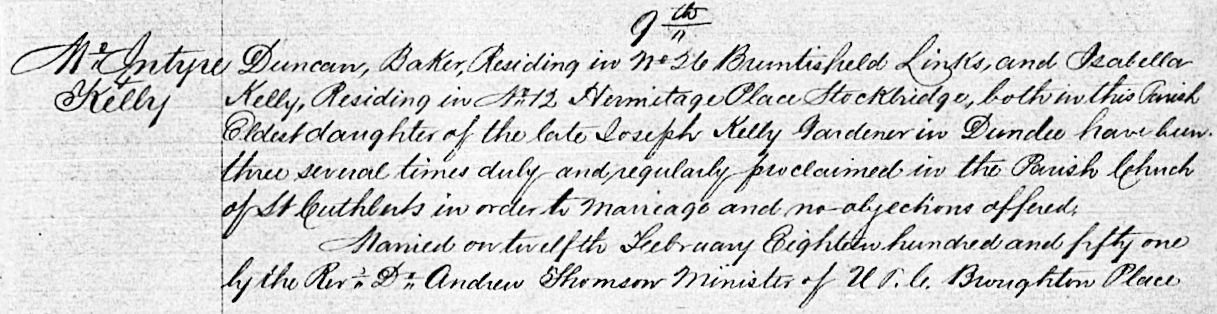 9th
McIntyre Duncan, Baker, Residing in No 26 Bruntisfield Links, and Isabella
Kelly Kelly, Residing in No 12 Hermitage Place Stockbridge, both in this Parish
Eldest daughter of the late Joseph Kelly Gardener in Dundee have been
three several times duly and regularly proclaimed in the Parish Church
of St Cuthberts in order to Marriage and no objections offered,
Married on twelfth February Eighteen hundred and fifty one
by the Revd Dr Andrew Thomson Minister of U.P.C. Broughton Place